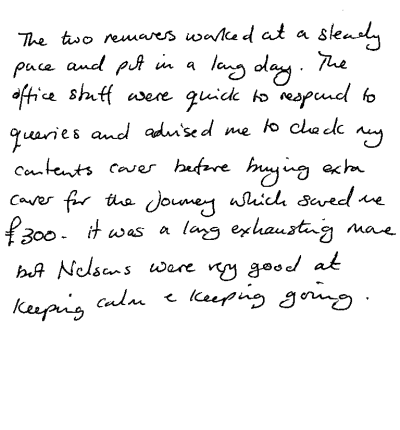 The two removers worked at a steady
pace and put in a long day. The
office staff were quick to respond to
queries and advised me to check my
contents cover before buying extra
cover for the journey which saved me
£300. it was a long exhausting move
but Nelsons were very good at
keeping calm & keeping going.